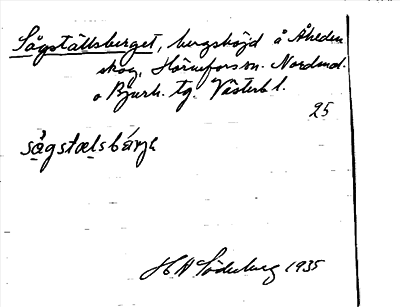 Sågställsberget, bergshöjd å Åheden
skog, Hörneforss sn. Nordmal.
o Bjurh. tg. Västerb l.
25
sågstælsbárje
H A Söderberg 1935